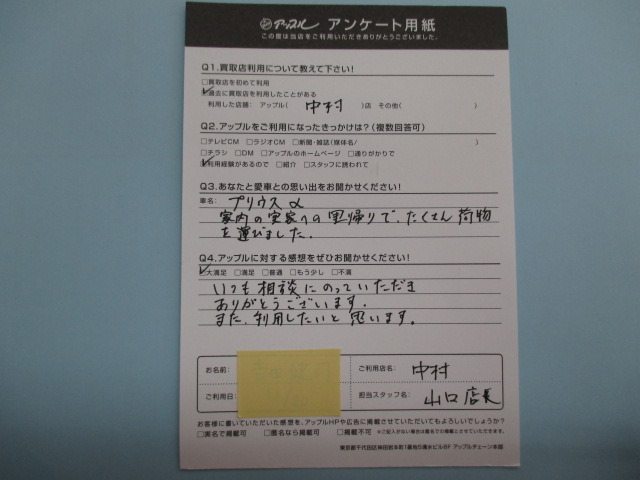 アップル アンケート用紙
この度は当店をご利用いただきありがとうございました。
Q1.買取店利用について教えて下さい!
□買取店を初めて利用
☑過去に買取店を利用したことがある
利用した店舗: アップル( 中村 )店 その他( )
Q2.アップルをご利用になったきっかけは?(複数回答可)
□テレビCM □ラジオCM □新聞・雑誌(媒体名/ )
□チラシ □DM □アップルのホームページ □通りがかりで
☑利用経験があるので □紹介 □スタッフに誘われて
Q3.あなたと愛車との思い出をお聞かせください!
車名: プリウスα
家内の実家への里帰りで、たくさん荷物
を運びました。
Q4.アップルに対する感想をぜひお聞かせください!
☑大満足 □満足 □普通 □もう少し □不満
いつも相談にのっていただき
ありがとうございます。
また、利用したいと思います。
お名前: ご利用店名: 中村
ご利用日: 担当スタッフ名: 山口店長
お客様に書いていただいた感想を、アップルHPや広告に掲載させていただいてもよろしいでしょうか?
□実名で掲載可 □匿名なら掲載可 □掲載不可 ※ご記入がない場合は匿名での掲載とさせていただきます。
東京都千代田区神田岩本町1番地5清水ビル8F アップルチェーン本部